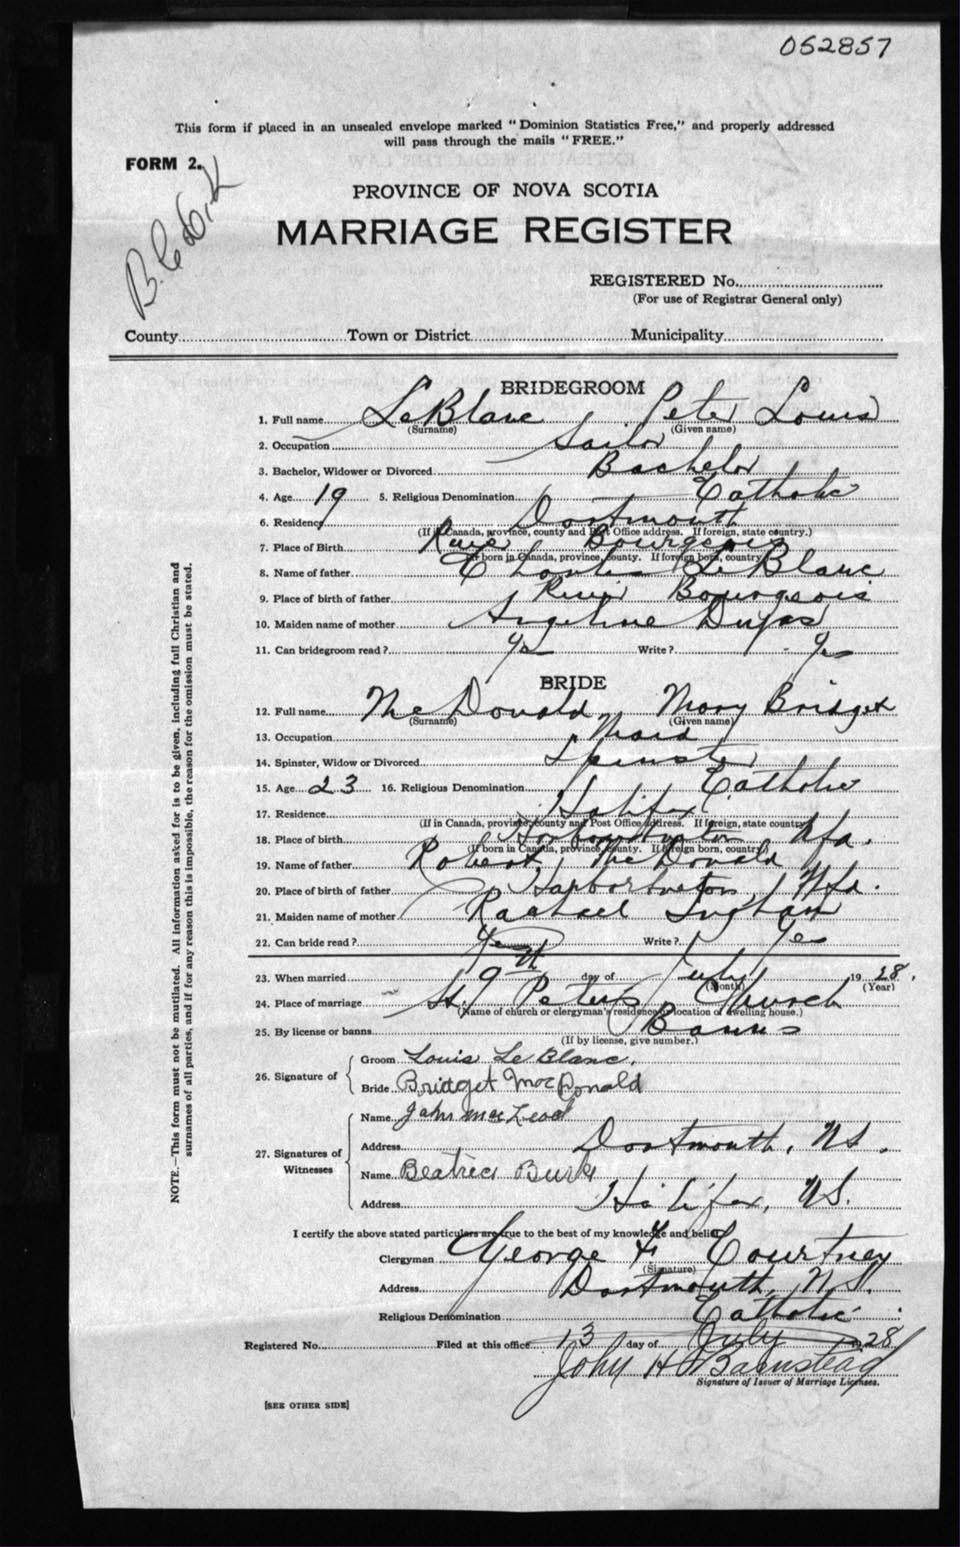 052857
This form if placed in an unsealed envelope marked "Dominion Statistics Free," and properly addressed
will pass through the mails "FREE."
FORM 2.
PROVINCE OF NOVA SCOTIA
MARRIAGE REGISTER
REGISTERED No.
(For use of Registrar General only)
County Town or District Municipality
BRIDEGROOM
1. Full name LeBlanc, Peter Louis
(Surname) (Given name)
2. Occupation Sailor
3. Bachelor, Widower or Divorced Bachelor
4. Age 19 5. Religious Denomination Catholic
6. Residency Dartmouth
(If in Canada, province, county and Post Office address. If foreign, state country.)
7. Place of Birth River Bourgeois
(If born in Canada, province, county. If foreign born, country)
8. Name of father Charles LeBlanc
9. Place of birth of father River Bourgeois
10. Maiden name of mother Angeline Dugas
11. Can bridegroom read? Yes Write? Yes
BRIDE
12. Full name McDonald, Mary Bridget
(Surname) (Given name)
13. Occupation Maid
14. Spinster, Widow or Divorced Spinster
15. Age 23 16. Religious Denomination Catholic
17. Residence Halifax
(If in Canada, province, county and Post Office address. If foreign, state country)
18. Place of birth Nfd.
(If born in Canada, province, county. If foreign born, country)
19. Name of father Robert McDonald
20. Place of birth of father Nfd.
21. Maiden name of mother Rachael Ingham
22. Can bride read? Yes Write? Yes
23. When married 9th day of July 1928.
(Month) (Year)
24. Place of marriage St. Peter's Church
(Name of church or clergyman's residence or location of dwelling house.)
25. By license or banns Banns
(If by license, give number.)
26. Signature of
Groom Louis LeBlanc.
Bride Bridget MacDonald
27. Signatures of Witnesses
Name John MacLeod
Address Dartmouth, N.S.
Name Beatrice Burk
Address Halifax, N.S.
I certify the above stated particulars are true to the best of my knowledge and belief
Clergyman George F. Courtney
(Signature)
Address Dartmouth, N.S.
Religious Denomination Catholic.
Registered No. Filed at this office 13 day of July 1928
John H Barnstead
Signature of Issuer of Marriage Licenses.
[SEE OTHER SIDE]
NOTE.—This form must not be mutilated. All information asked for is to be given, including full Christian and
surnames of all parties, and if for any reason this is impossible, the reason for the omission must be stated.